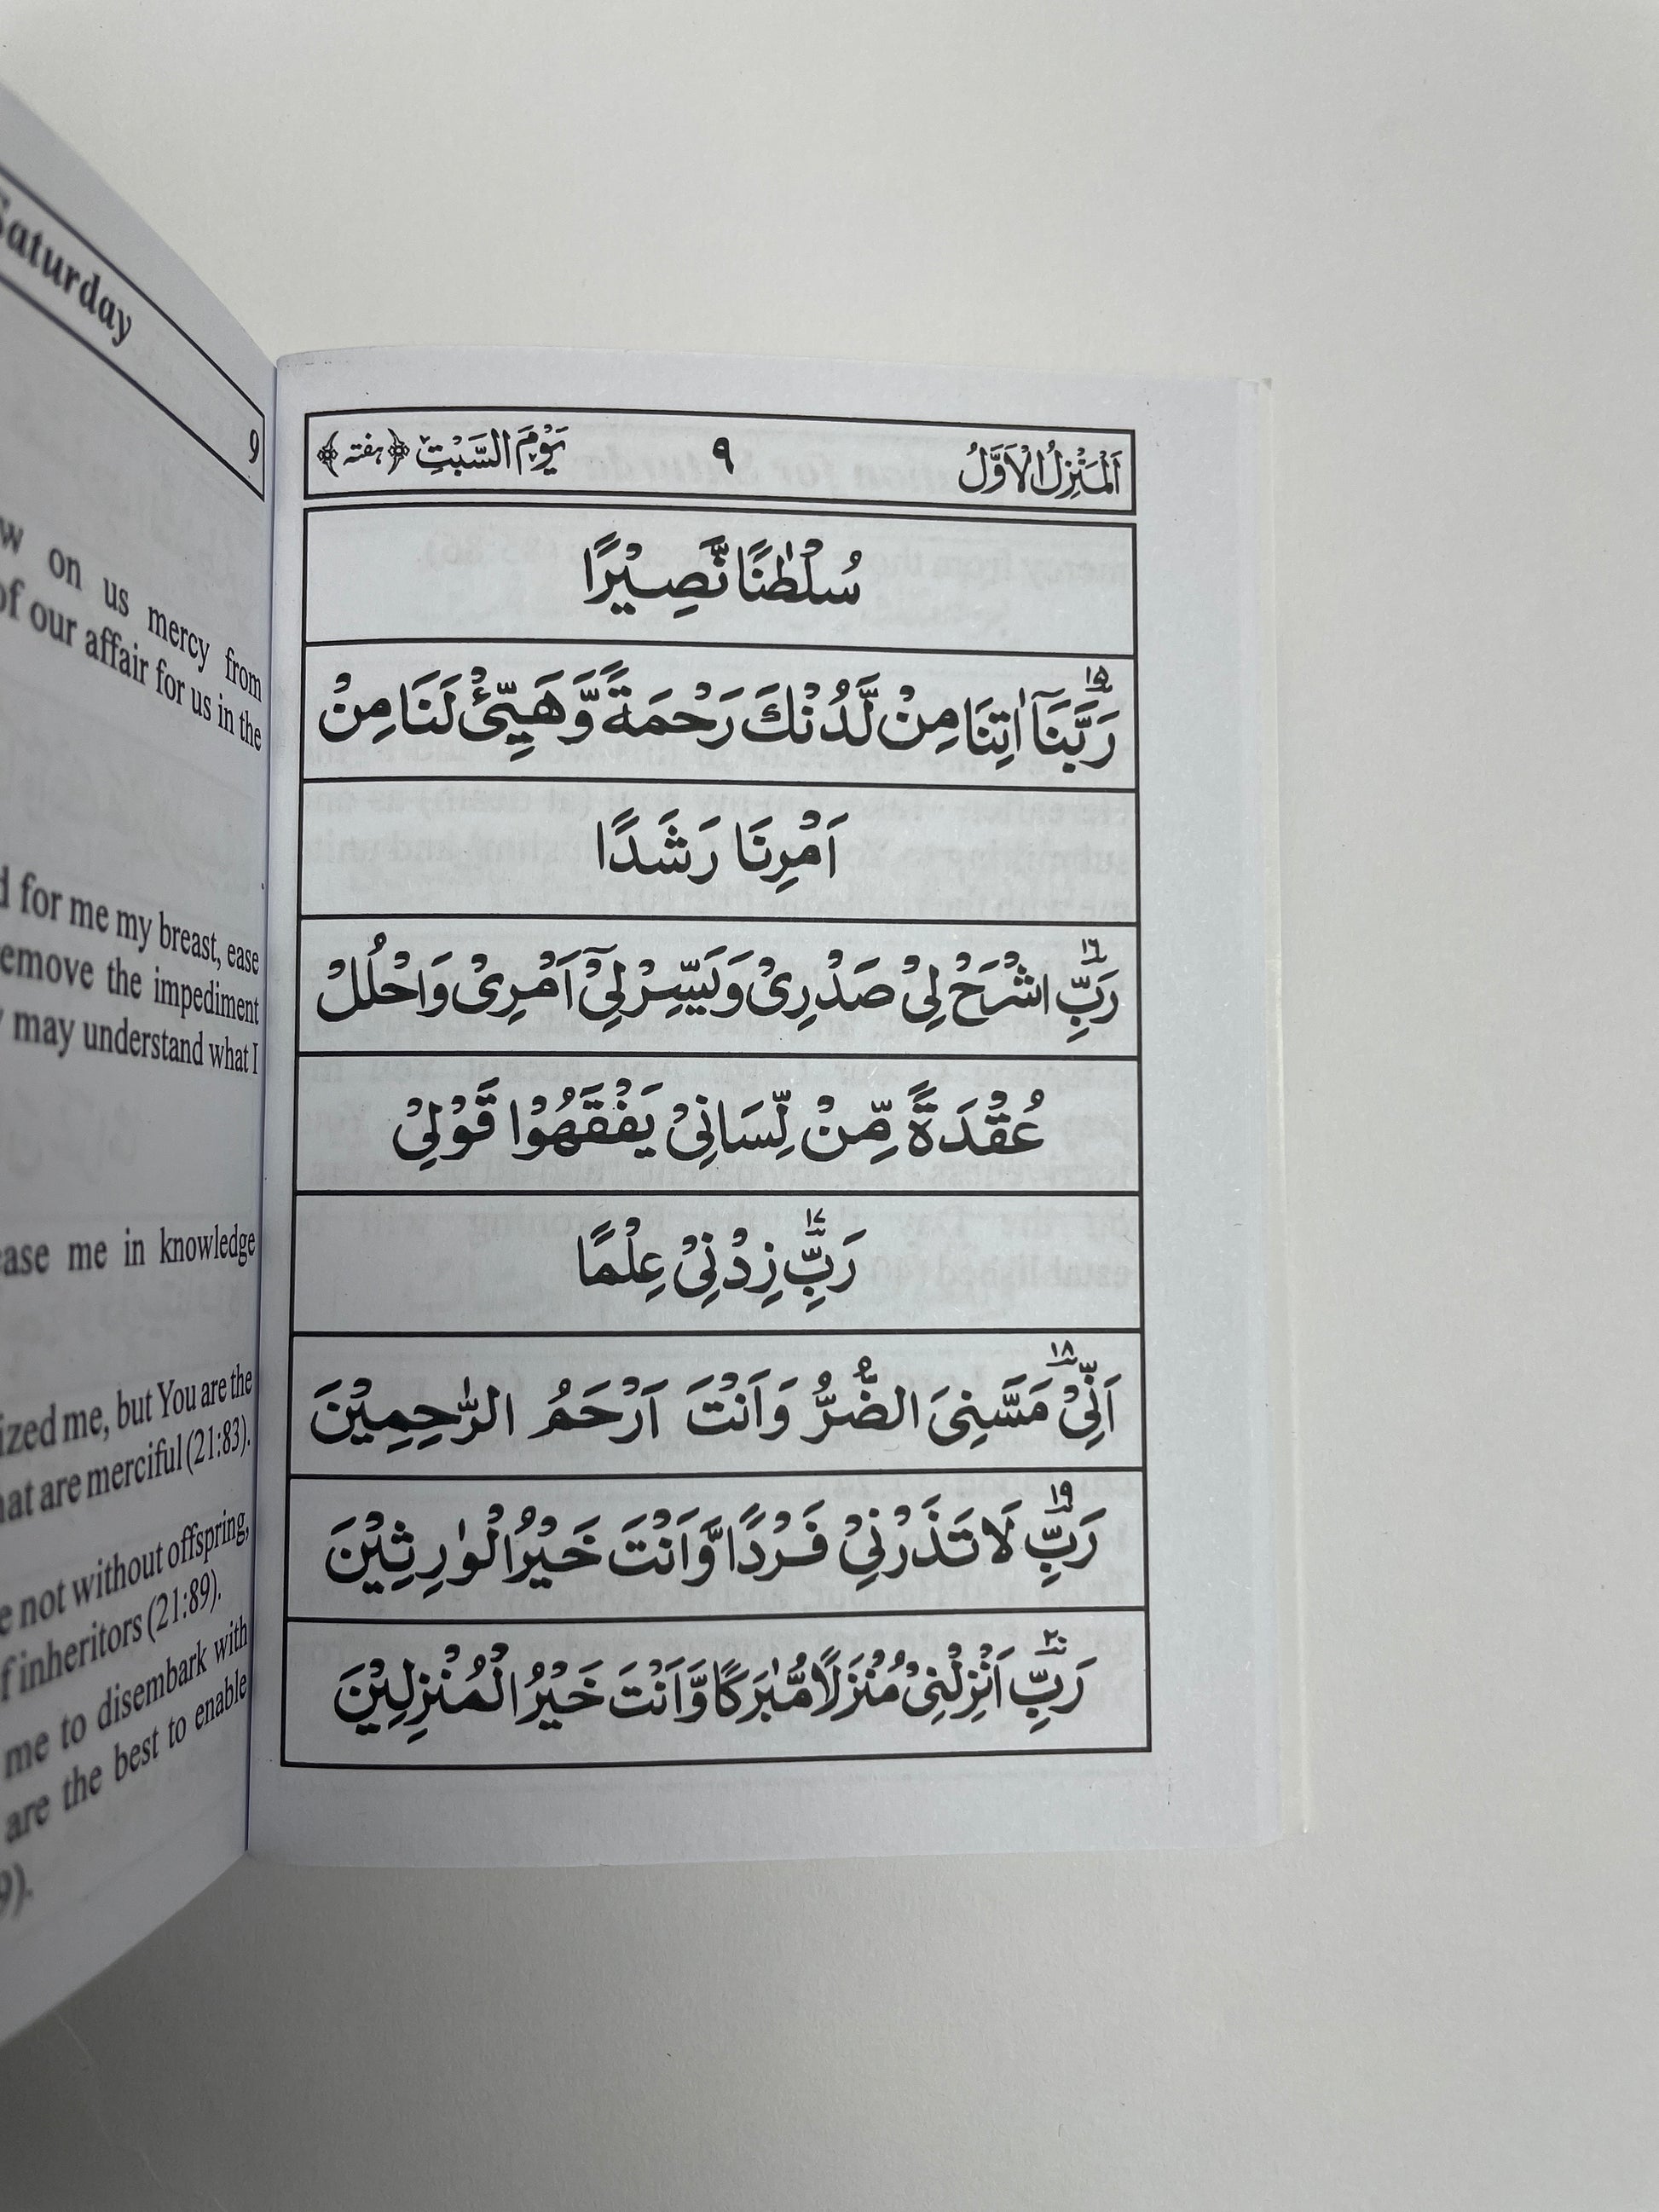 Saturday
9
on us mercy from
of our affair for us in the
for me my breast, ease
remove the impediment
may understand what I
me in knowledge
me, but You are the
that are merciful (21:83).
not without offspring,
of inheritors (21:89).
me to disembark with
are the best to enable
اَلْمَنْزِلُ الْاَوَّلُ ٩ يَوْمُ السَّبْتِ ﴿ہفتہ﴾
سُلْطٰنًا نَّصِيْرًا
١٥ رَبَّنَآ اٰتِنَا مِنْ لَّدُنْكَ رَحْمَةً وَّهَيِّئْ لَنَا مِنْ
اَمْرِنَا رَشَدًا
١٦ رَبِّ اشْرَحْ لِيْ صَدْرِيْ وَيَسِّرْ لِيْٓ اَمْرِيْ وَاحْلُلْ
عُقْدَةً مِّنْ لِّسَانِيْ يَفْقَهُوْا قَوْلِيْ
١٧ رَبِّ زِدْنِيْ عِلْمًا
١٨ اَنِّيْ مَسَّنِيَ الضُّرُّ وَاَنْتَ اَرْحَمُ الرّٰحِمِيْنَ
١٩ رَبِّ لَا تَذَرْنِيْ فَرْدًا وَّاَنْتَ خَيْرُ الْوٰرِثِيْنَ
٢٠ رَبِّ اَنْزِلْنِيْ مُنْزَلًا مُّبٰرَكًا وَّاَنْتَ خَيْرُ الْمُنْزِلِيْنَ